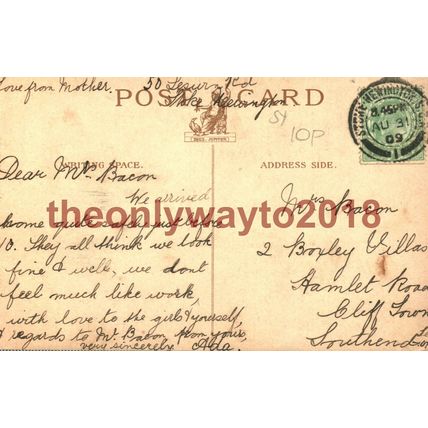 Love from Mother.
50 Rd
Stoke Newington
POST CARD
WRITING SPACE.
ADDRESS SIDE.
STOKE NEWINGTON
8.45PM
AU 31
09
1
St
10P
Dear Mrs Bacon
We arrived
home quite safe just before
10. They all think we look
fine & well, we dont
feel much like work,
with love to the girls & yourself,
& regards to Mr. Bacon from yours
very sincerely Ada.
Mrs Bacon
2 Boxley Villas
Hamlet Road
Cliff Town
Southend
theonlywayto2018